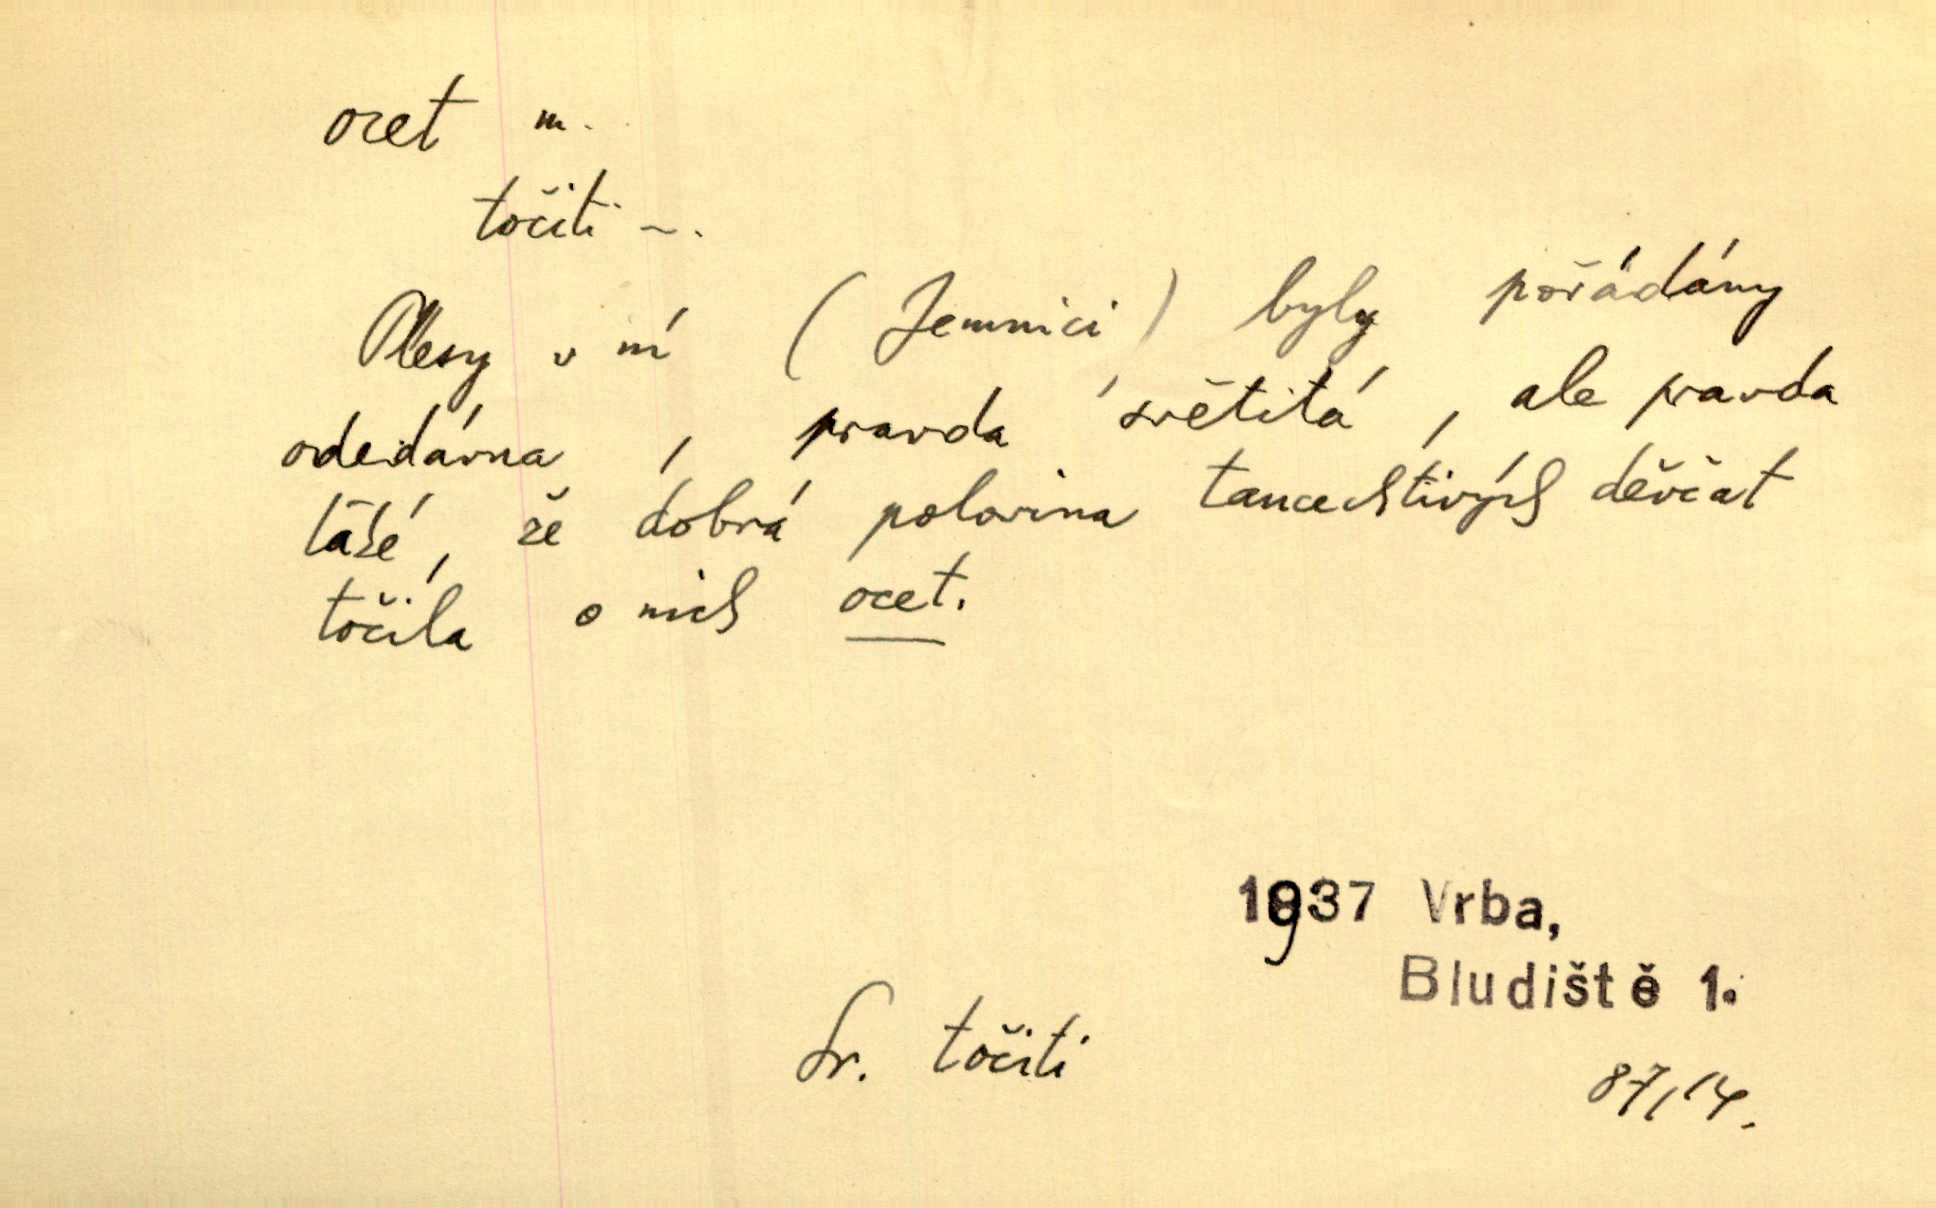 ocet m.
točiti ~.
Plesy v ní (Jemnici) byly pořádány
odedávna, pravda světitá, ale pravda
též, že dobrá polovina tancechtivých děvčat
točila o nich ocet.
1937 Vrba,
Bludiště 1.
Sr. točiti
87,14.